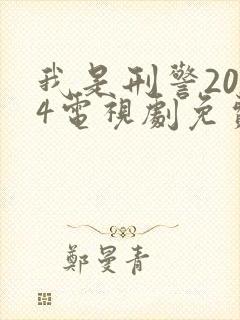 我是刑警20
4電視劇免
鄭曼青